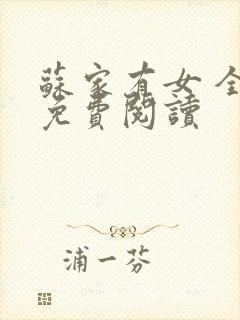 蘇家有女全
免費閱讀
浦一芬